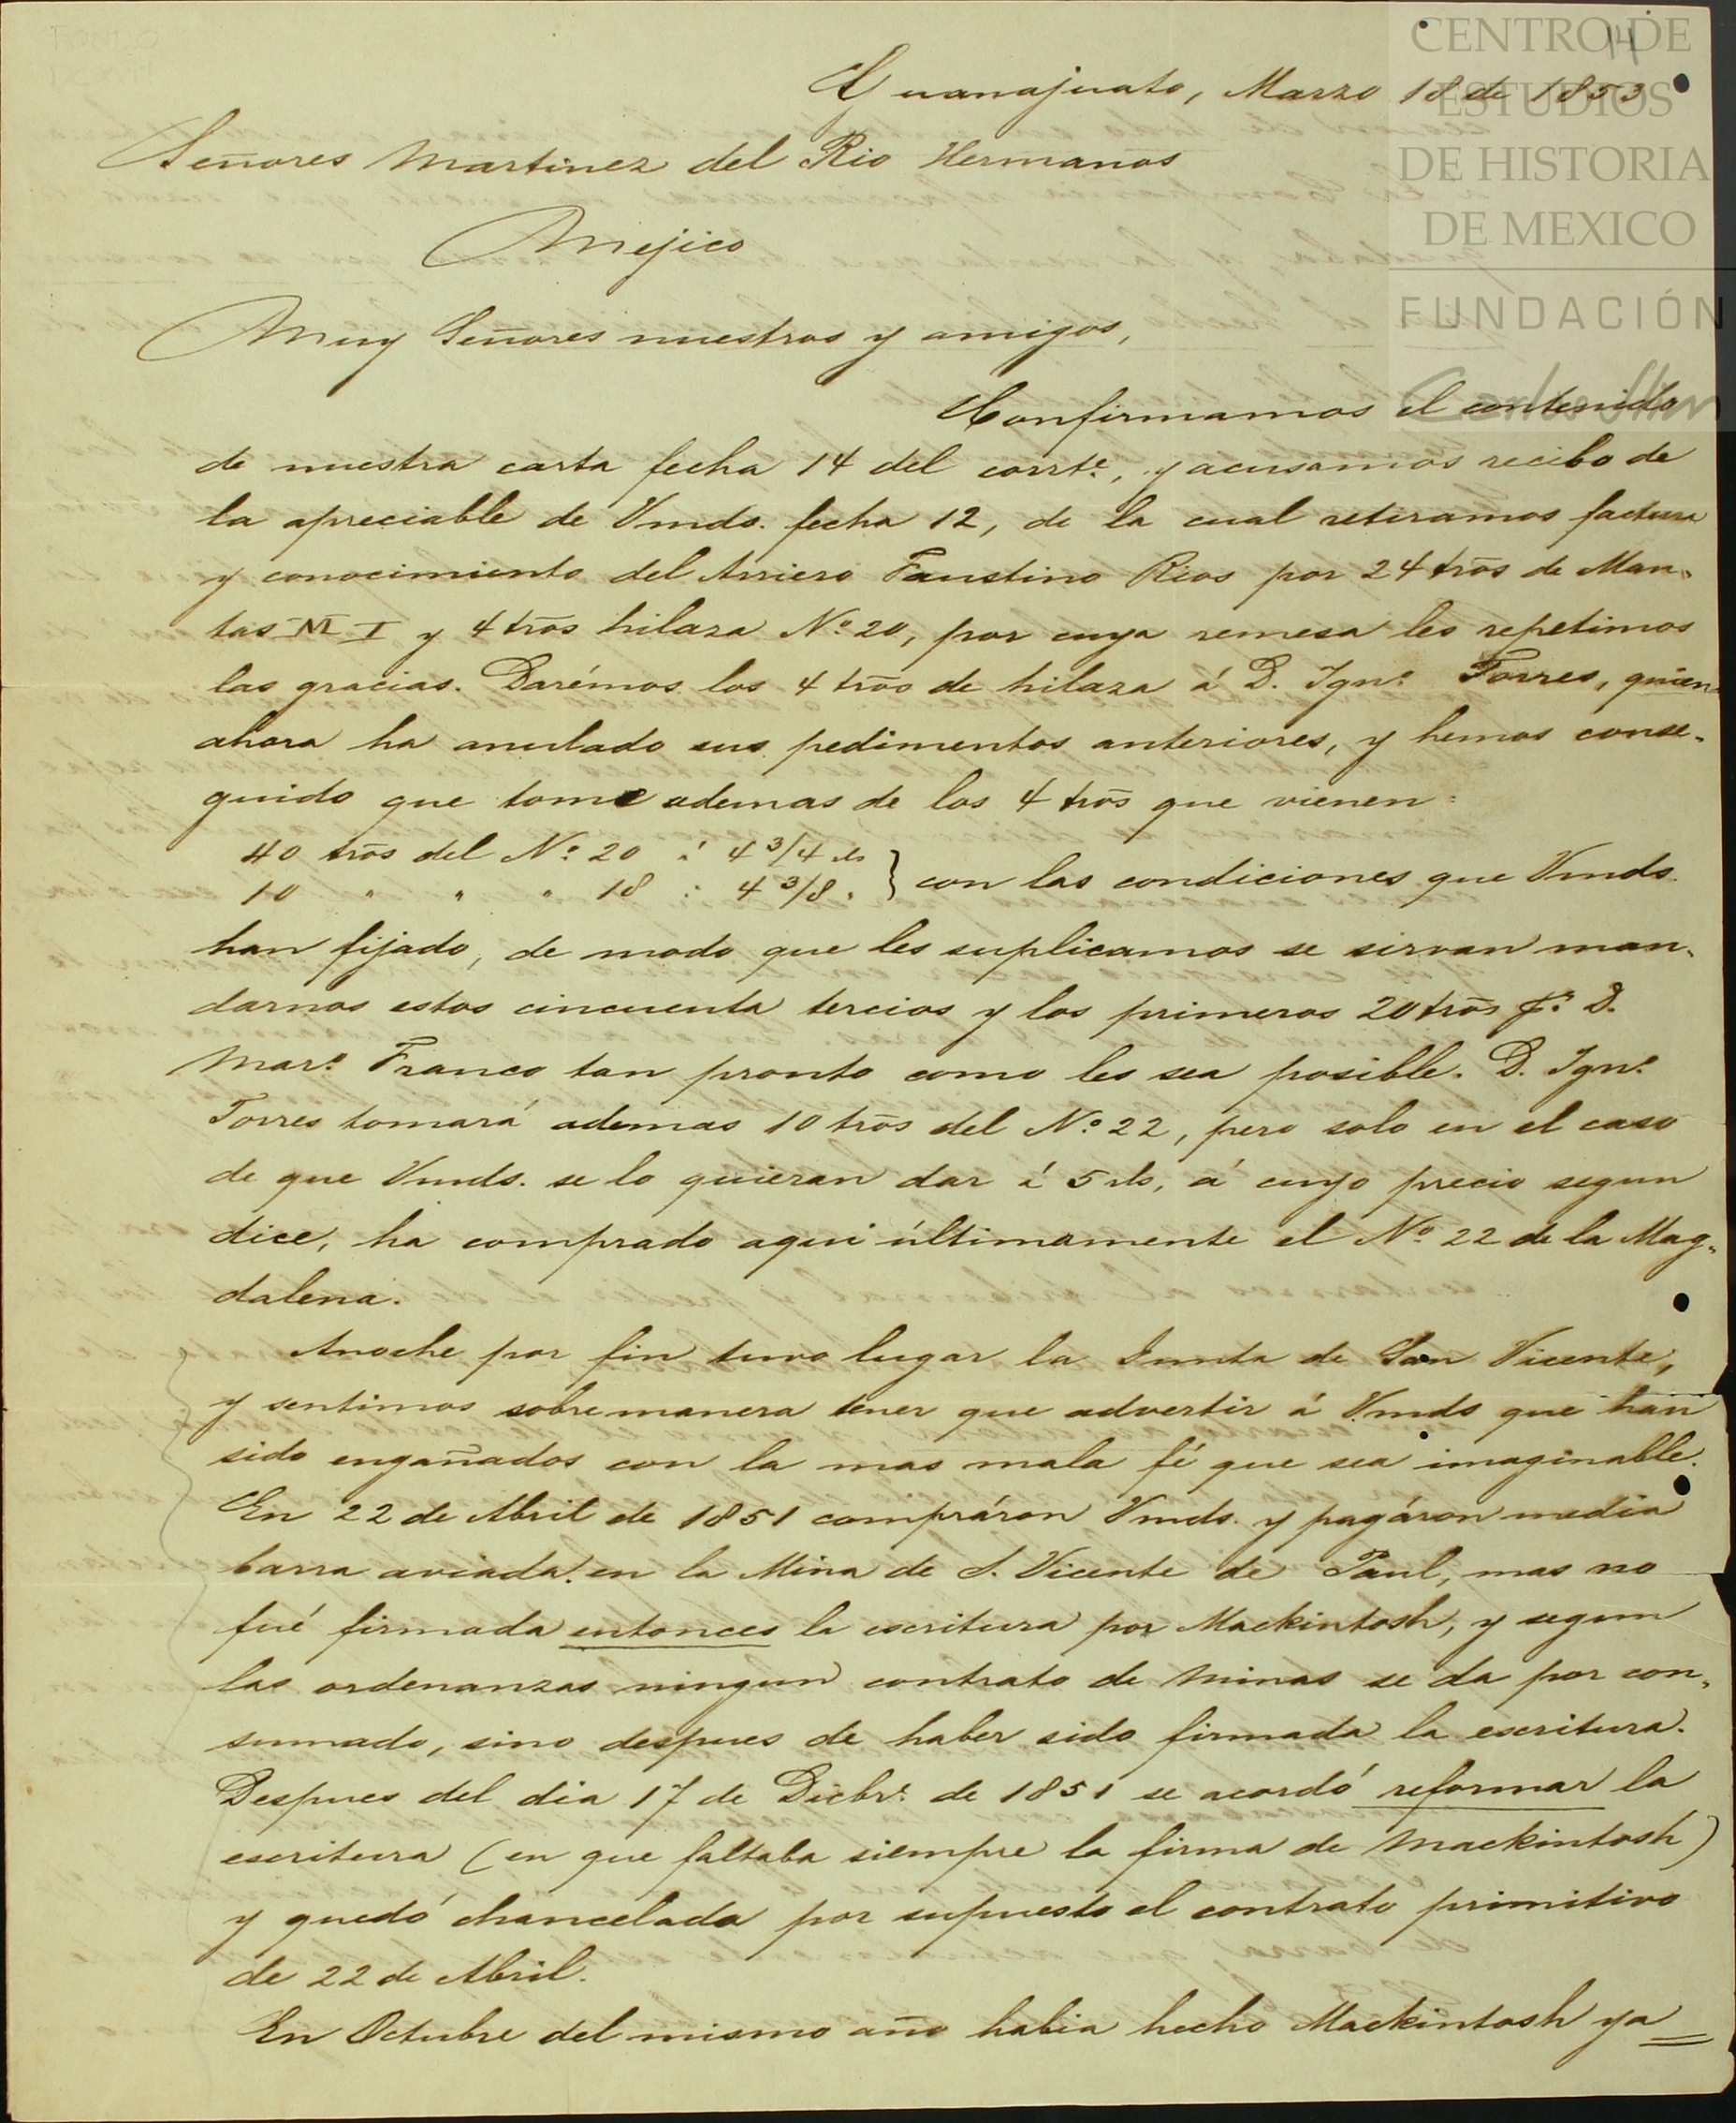 14
CENTRO DE
ESTUDIOS
DE HISTORIA
DE MEXICO
FUNDACIÓN
Carlos Slim
Guanajuato, Marzo 18 de 1853
Señores Martinez del Rio Hermanos
Mejico
Muy Señores nuestros y amigos,
Confirmamos el contenido
de nuestra carta fecha 14 del corrte., y acusamos recibo de
la apreciable de Vmds. fecha 12, de la cual retiramos factura
y conocimiento del Arriero Faustino Rios por 24 tros de Man-
tas M I y 4 tros hilaza No. 20, por cuya remesa les repetimos
las gracias. Darémos los 4 tros de hilaza á D. Igno. Torres, quien
ahora ha anulado sus pedimentos anteriores, y hemos conse-
guido que tome ademas de los 4 tros que vienen:
40 tros del No. 20 á 4 3/4 rls
10 " " " 18 : 4 3/8 " } con las condiciones que Vmds.
han fijado, de modo que les suplicamos se sirvan man-
darnos estos cincuenta tercios y los primeros 20 tros D.
Maro. Franco tan pronto como les sea posible. D. Igno.
Torres tomará ademas 10 tros del No. 22, pero solo en el caso
de que Vmds. se lo quieran dar á 5 rls, á cuyo precio segun
dice, ha comprado aqui últimamente el No. 22 de la Mag-
dalena.
Anoche por fin tuvo lugar la Junta de San Vicente,
y sentimos sobremanera tener que advertir á Vmds que han
sido engañados con la mas mala fé que sea imaginable.
En 22 de Abril de 1851 compráron Vmds. y pagáron media
barra aviada en la Mina de S. Vicente de Paul, mas no
fué firmada entonces la escritura por Mackintosh, y segun
las ordenanzas ningun contrato de minas se da por con-
sumado, sino despues de haber sido firmada la escritura.
Despues del dia 17 de Dicbre. de 1851 se acordó reformar la
escritura (en que faltaba siempre la firma de Mackintosh)
y quedó chancelada por supuesto el contrato primitivo
de 22 de Abril.
En Octubre del mismo año habia hecho Mackintosh ya